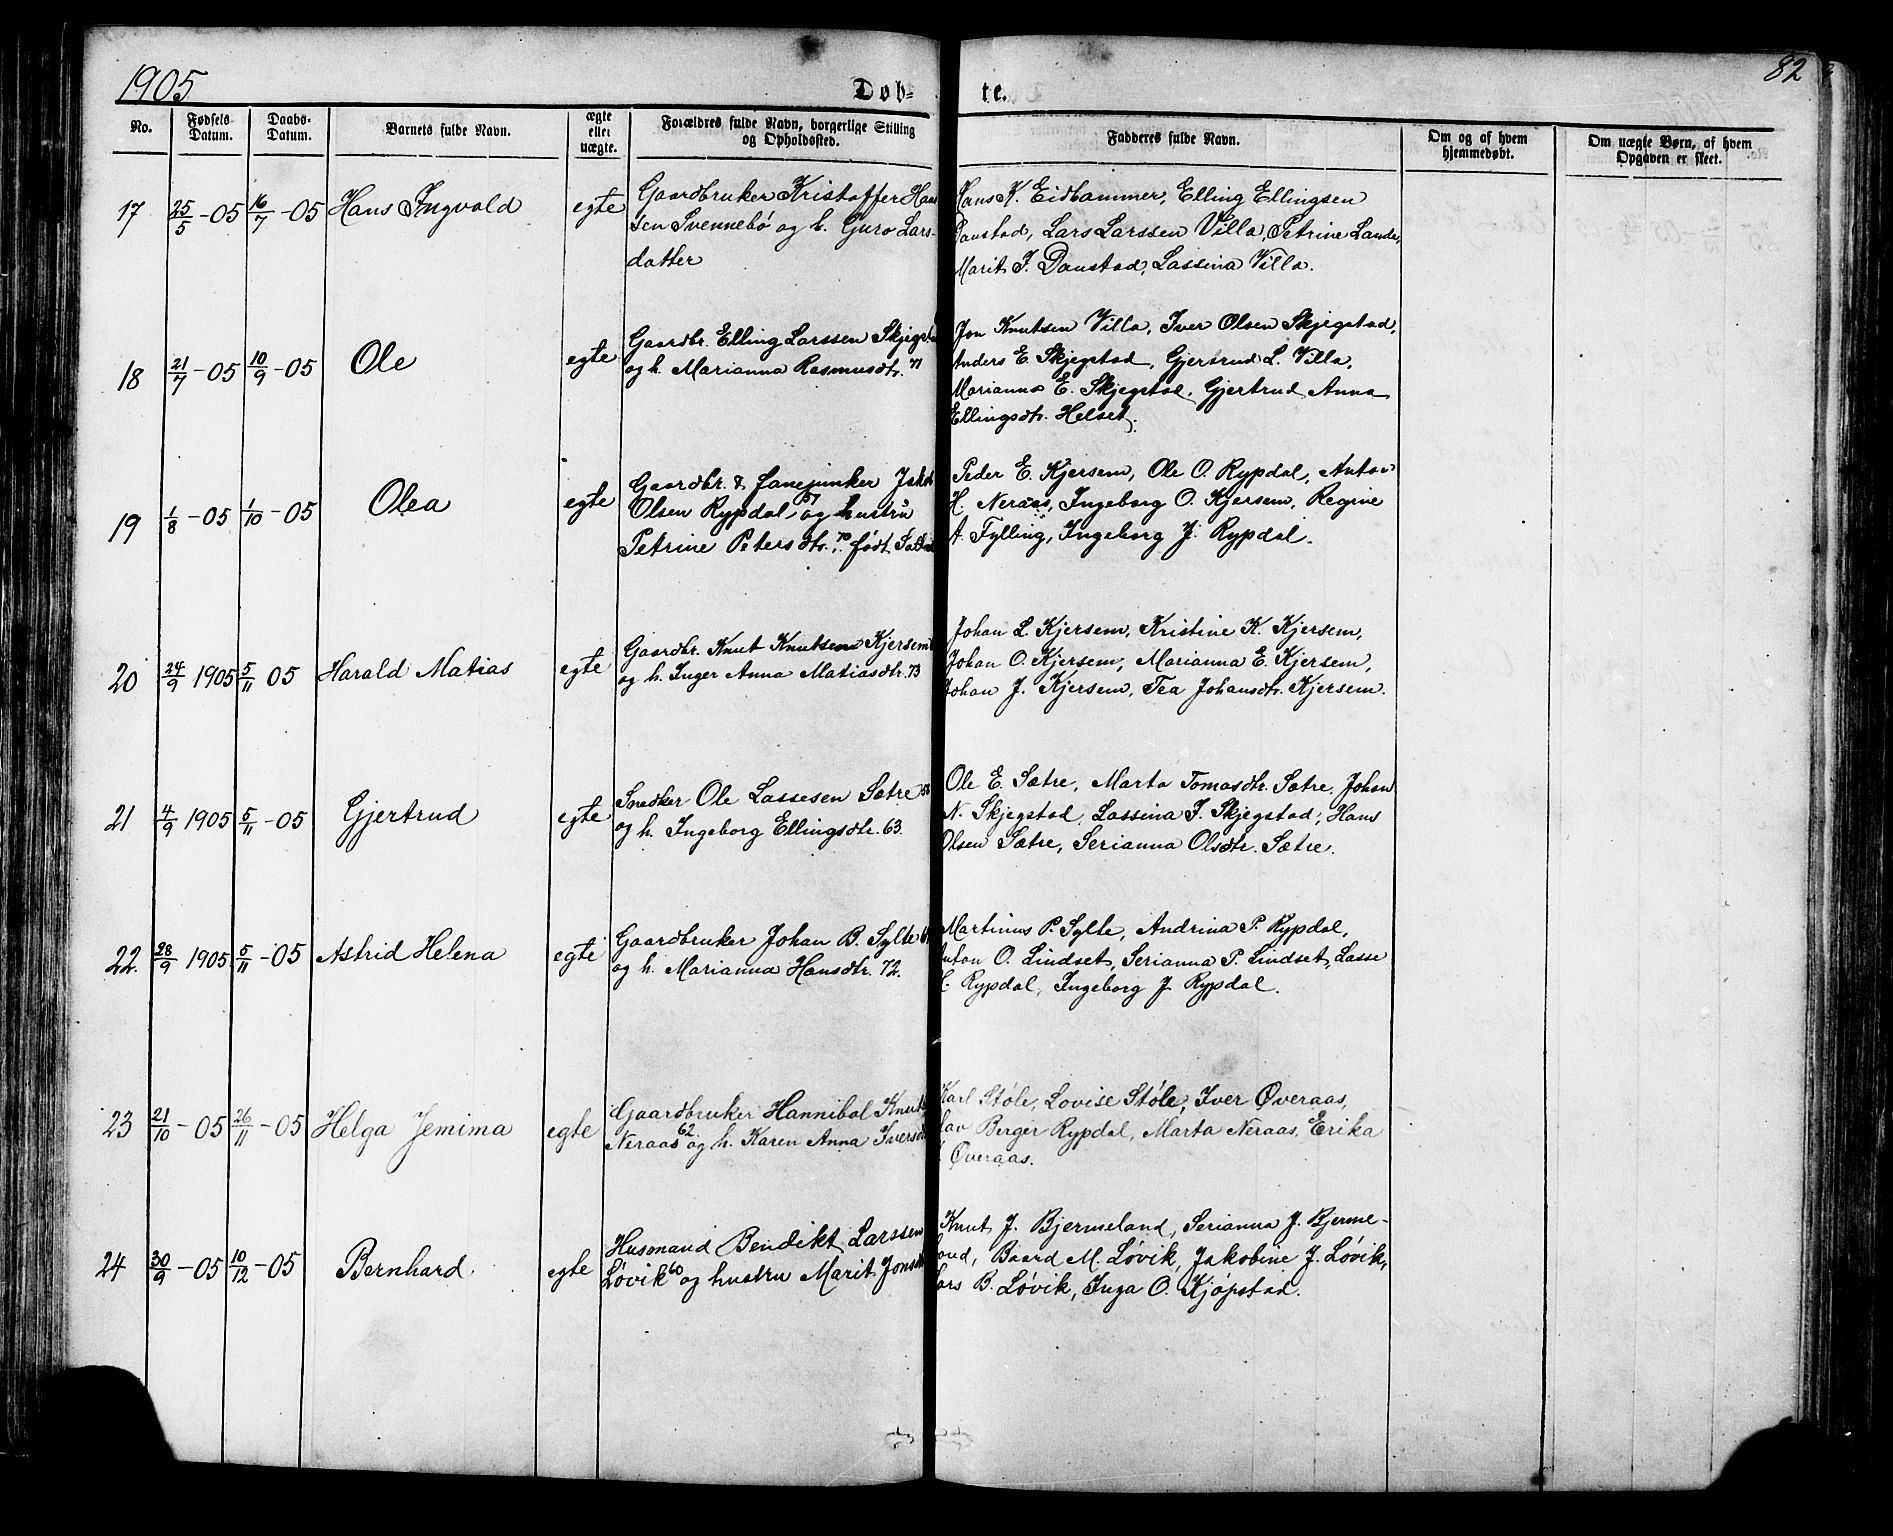 1905
Døb-
te.
82
No.
Fødsels Datum.
Daabs-Datum.
Barnets fulde Navn.
ægte eller uægte.
Forældres fulde Navn, borgerlige Stilling og Opholdssted.
Fadderes fulde Navn.
Om og af hvem hjemmedøbt.
Om uægte Børn, af hvem Opgaven er skeet.
17 25/5 -05 16/7 -05 Hans Ingvald egte
Gaardbruker Kristoffer Han
sen Svennebø og h. Guro Lars-
datter
Hans K. Eidhammer, Elling Ellingsen
Daustad, Lars Larssen Villa, Petrine Lande,
Marit J. Daustad, Lassina Villa.
18 21/7 -05 10/9 -05 Ole egte
Gaardbr. Elling Larssen Skjegsta
og h. Marianna Rasmusdtr. 71
Jon Knutsen Villa, Iver Olsen Skjegstad,
Anders E. Skjegstad, Gjertrud L. Villa,
Marianna E. Skjegstad. Gjertrud Anna
Ellingsdtr. Helset.
19 1/8 -05 1/10 -05 Olea egte
Gaardbr. & fanejunker Jakob
Olsen Rypdal 57 og hustru
Petrine Petersdtr. 70 født
Peder E. Kjersem, Ole O. Rypdal, Anton
H. Neraas, Ingeborg O. Kjersem, Regine
A. Fylling, Ingeborg J. Rypdal.
20 24/9 1905 5/11 05 Harald Matias egte
Gaardbr. Knut Knutsen Kjersem
og h. Inger Anna Matiasdtr. 73
Johan L. Kjersem, Kristine K. Kjersem,
Johan O. Kjersem, Marianna E. Kjersem,
Johan J. Kjersem, Tea Johansdtr. Kjersem.
21 4/9 1905 5/11 -05 Gjertrud egte
Snedker Ole Lassesen Sætre 58
og h. Ingeborg Ellingsdtr. 63.
Ole E. Sætre, Marta Tomasdtr. Sætre, Johan
N. Skjegstad, Lassina J. Skjegstad, Hans
Olsen Sætre, Serianna Olsdtr. Sætre.
22. 28/9 1905 5/11 -05 Astrid Helena egte
Gaardbruker Johan B. Sylte
og h. Marianna Hansdtr. 72.
Martinus P. Sylte, Andrina P. Rypdal,
Anton O. Lindset, Serianna P. Lindset, Lasse
H. Rypdal, Ingeborg J. Rypdal.
23 21/10 -05 26/11 -05 Helga Jemima egte
Gaardbruker Hannibal Knuts
Neraas 62 og h. Karen Anna Iversdt
Karl Støle, Lovise Støle, Iver Øveraas,
Olav Berger Rypdal, Marta Neraas, Erika
Øveraas.
24 30/9 -05 10/12 -05 Bernhard. egte
Husmand Bendikt Larssen
Løvik 60 og hustru Marit Jonsdt
Knut J. Bjermeland, Serianna J. Bjerme-
land, Baard M. Løvik, Jakobine J. Løvik,
Lars B. Løvik, Inga O. Kjøpstad.